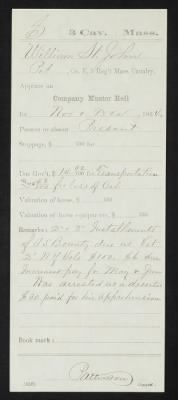 3 Cav. Mass.
William St. John
Pvt, Co. E, 3 Reg't Mass. Cavalry.
Appears on
Company Muster Roll
for Nov & Dec, 1864.
Present or absent Present
Stoppage, $ 100 for
Due Gov't, $ 100 for Transportation
for loss of
Valuation of horse, $ 100
Valuation of horse equipments, $ 100
Remarks: 2" & 3" Installments
of U.S. Bounty due as Vet.
Increased pay for May & June
Was arrested as a deserter
$30 paid for his apprehension
Book mark:
Patterson
Copyist.